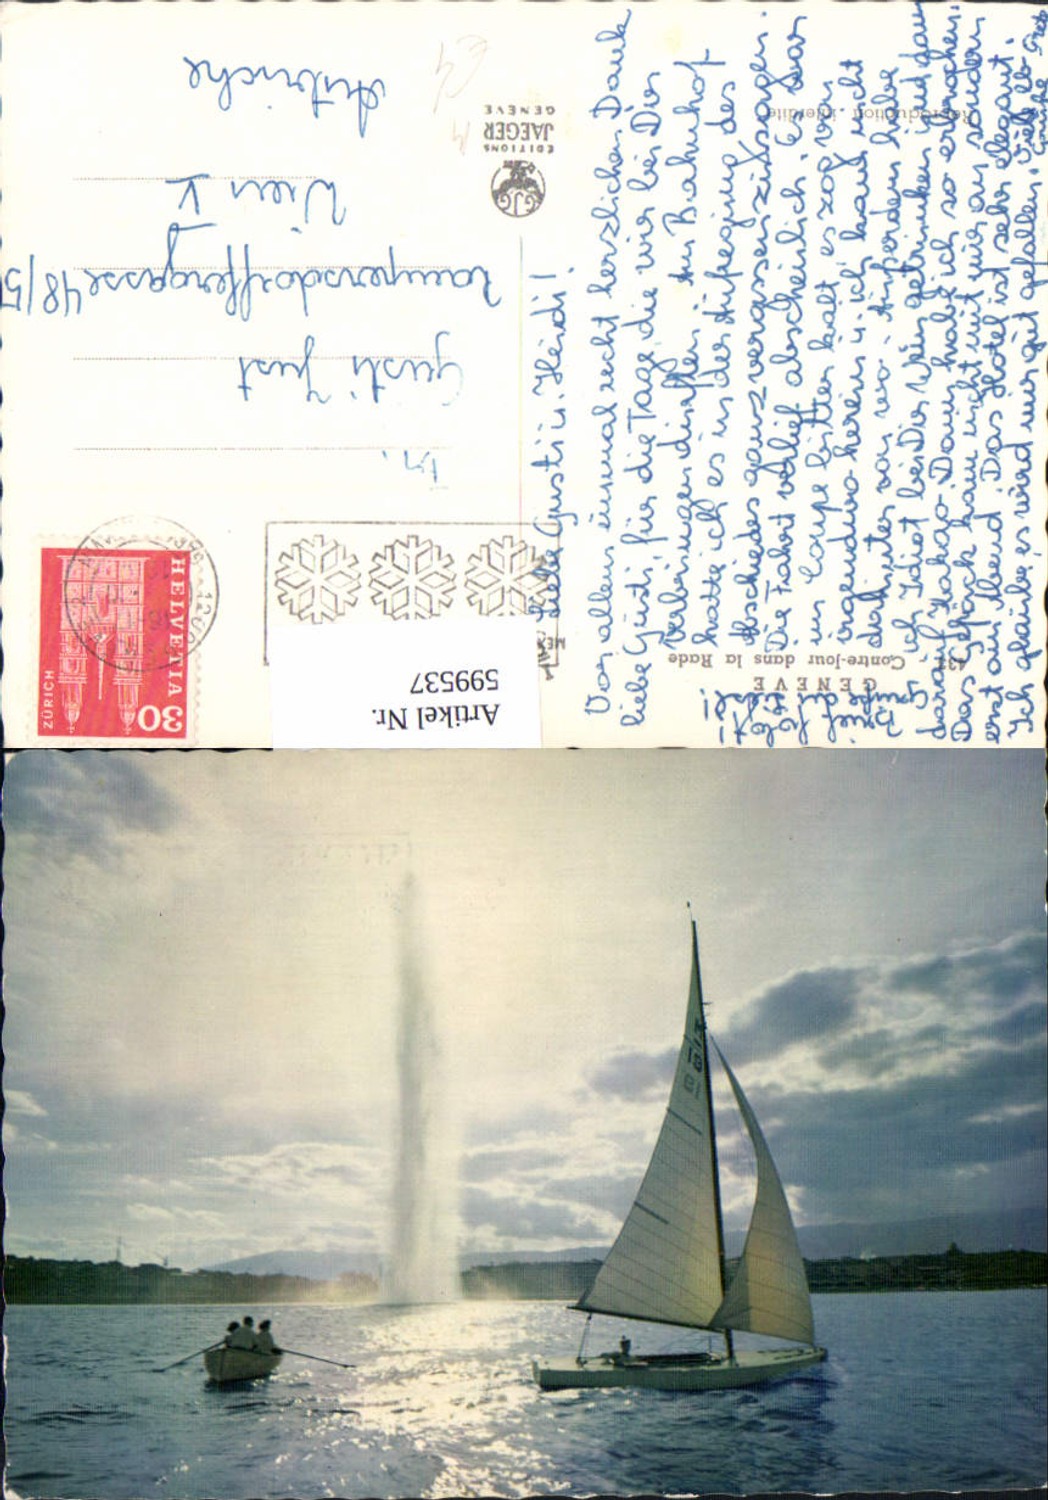 Liebe Gusti u. Heidi!
Vor allem einmal recht herzlichen Dank
liebe Gusti, für die Tage, die wir bei Dir
verbringen durften. Am Bahnhof
hatte ich es in der Aufregung des
Abschiedes ganz vergessen zu sagen.
Die Fahrt verlief abscheinlich. Es war
im Coupe bitter kalt, es zog von
irgendwo herein u. ich kaug nicht
dahinter von wo. Außerdem habe
ich Idiot bei Dir Wein getrunken und dann
darauf Kakao. Dann habe ich so erbrochen.
Das Gepäck kam nicht mit mir an, sondern
erst am Abend. Das Hotel ist sehr elegant.
Ich glaube, es wird mir gut gefallen. Viele lb.
Grüße Grete
GENEVE
Contre-jour dans la Rade
Reproduction interdite
EDITIONS
JAEGER
GENEVE
CJG
HELVETIA
30
ZÜRICH
Fr.
Gusti Just
Rampersdorffergasse 48/5
Wien V
Autriche
Artikel Nr.
599537